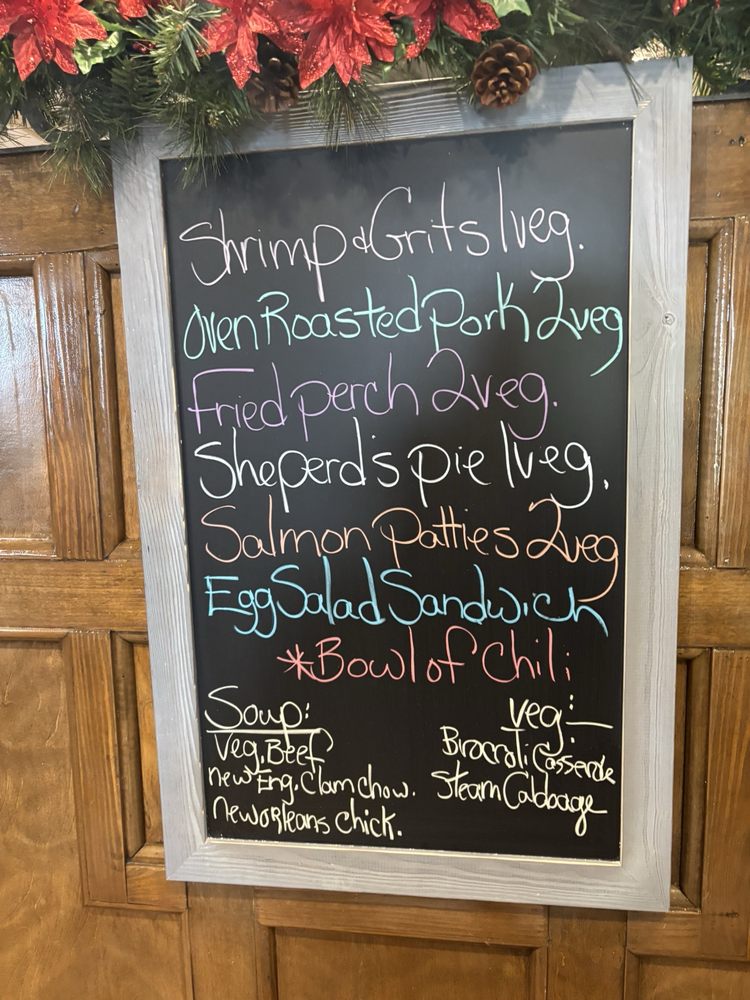 Shrimp & Grits 1veg.
Oven Roasted Pork 2veg
Fried perch 2veg.
Sheperd's pie 1veg.
Salmon Patties 2veg
Egg Salad Sandwich
*Bowl of Chili
Soup:
Veg. Beef
new Eng. Clam chow.
new orleans chick.
Veg:
Broccoli Casserole
Steam Cabbage